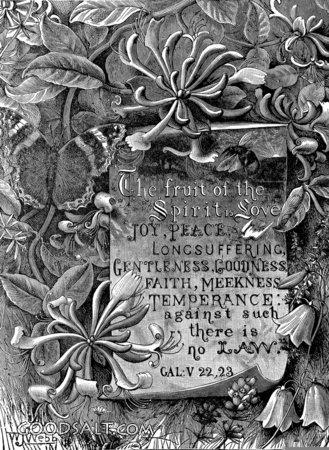 The fruit of the
Spirit is Love
JOY, PEACE,
LONGSUFFERING,
GENTLENESS, GOODNESS,
FAITH, MEEKNESS
TEMPERANCE:
against such
there is
no LAW.
GAL: V 22, 23
GOODSALT.COM